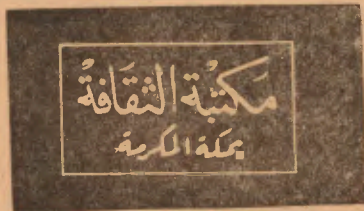 مكتبة الثقافة
بمكة المكرمة